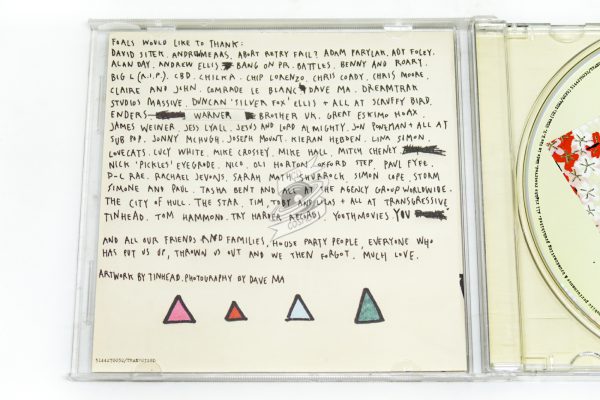 FOALS WOULD LIKE TO THANK:
DAVID SITEK. ANDREW MEARS, ABORT RETRY FAIL? ADAM PARYLAK. ADY FOLEY.
ALAN DAY. ANDREW ELLIS BANG ON PR. BATTLES. BENNY AND ROARY.
BIG L (R.I.P.). CBD. CHILKA. CHIP LORENZO. CHRIS COADY. CHRIS MOORE.
CLAIRE AND JOHN. COMRADE LE BLANC DAVE MA. DREAMTRAK
STUDIOS MASSIVE. DUNCAN 'SILVER FOX' ELLIS + ALL AT SCRUFFY BIRD.
ENDERS WARNER BROTHER UK. GREAT ESKIMO HOAX.
JAMES WEINER. JESS LYALL. JESUS AND LORD ALMIGHTY. JON PONEMAN + ALL AT
SUB POP. JONNY MCHUGH. JOSEPH MOUNT. KIERAN HEBDEN. LINA SIMON.
LOVECATS. LUCY WHITE. MIKE CROSSEY. MIKE HALL. MITCH CHENEY
NICK 'PICKLES' EYEGRODE. NICO. OLI HORTON. OXFORD STEP. PAUL FYFE.
D-L RAE. RACHAEL DEVONS. SARAH MOTH. SHUVROCK. SIMON COPE. STORM
SIMONE AND PAUL. TASHA BENT AND ALL AT THE AGENCY GROUP WORLDWIDE.
THE CITY OF HULL. THE STAR. TIM, TOBY AND LILAS + ALL AT TRANSGRESSIVE
TINHEAD. TOM HAMMOND. TRY HARDER RECORDS. YOUTHMOVIES. YOU
AND ALL OUR FRIENDS AND FAMILIES, HOUSE PARTY PEOPLE, EVERYONE WHO
HAS PUT US UP, THROWN US OUT AND WE THEN FORGOT. MUCH LOVE.
ARTWORK BY TINHEAD. PHOTOGRAPHY BY DAVE MA